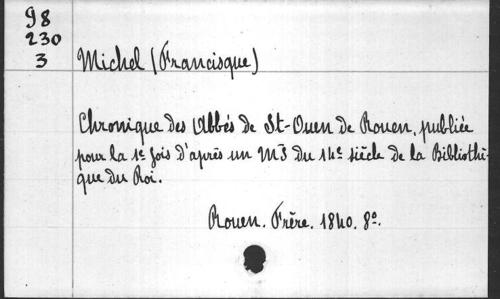 98
230
3
Michel (Francisque)
Chronique des Abbés de St-Ouen de Rouen, publiée
pour la 1e fois d'après un MS du 14e siècle de la Bibliothè-
que du Roi.
Rouen. Frère. 1840. 8º.